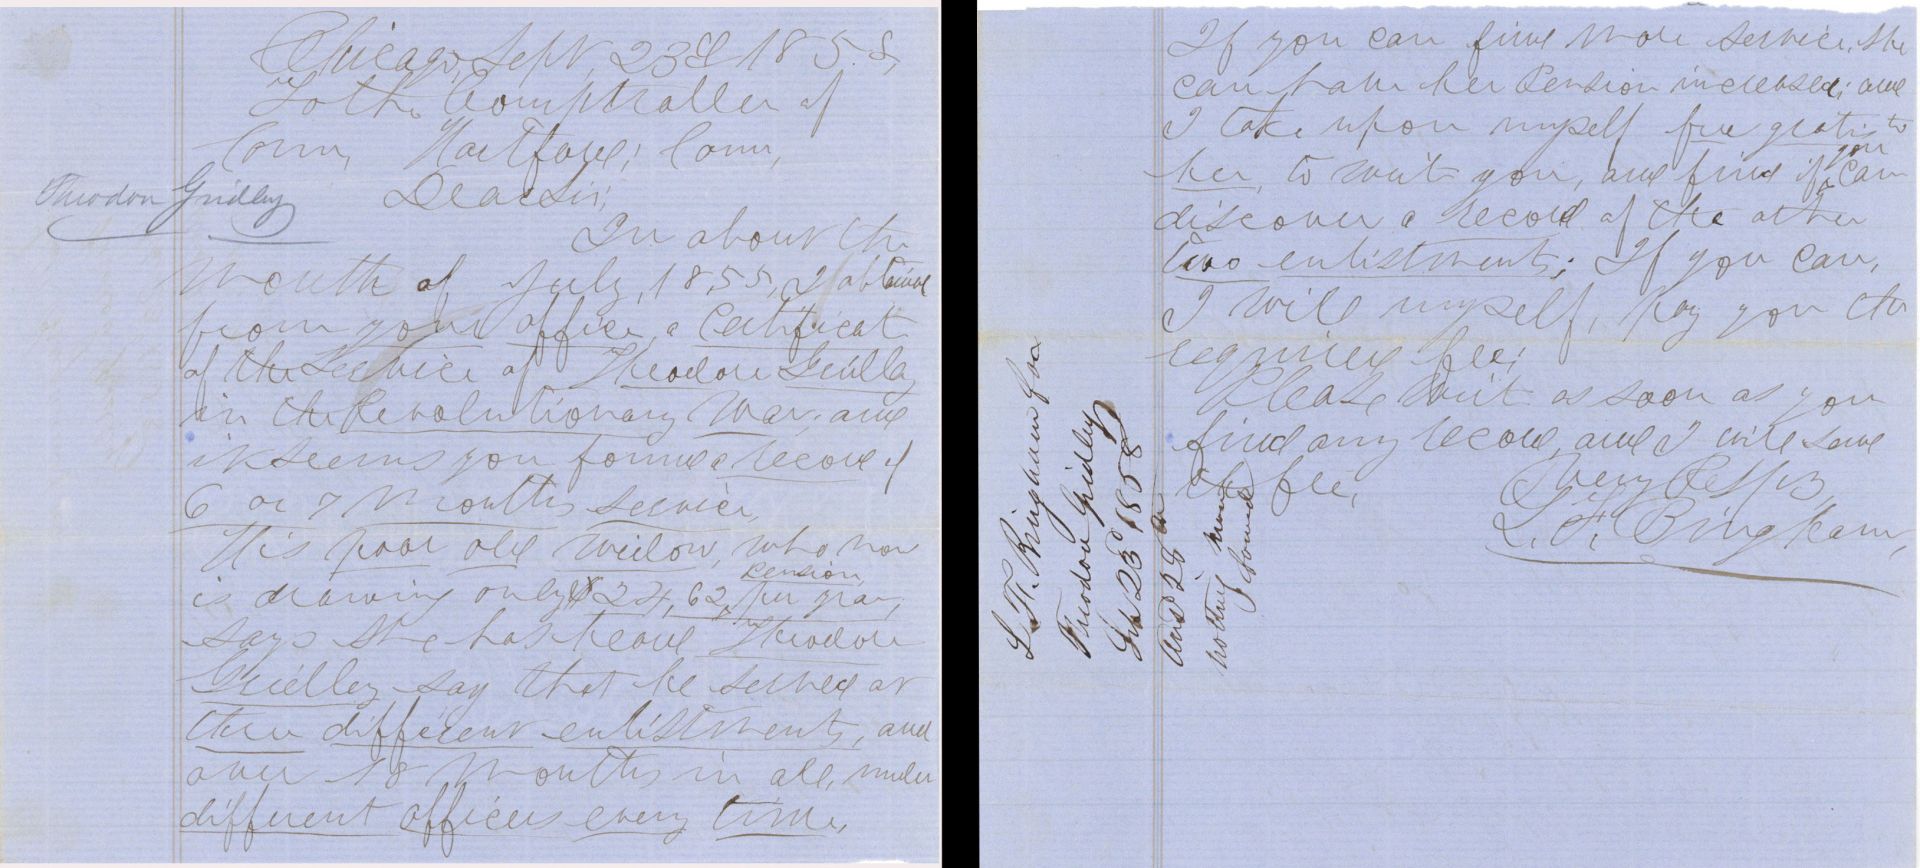 Chicago, Sept, 23d 1858,
To the Comptroller of
Conn, Hartford; Conn,
Theodore Gridley
Dear Sir;
In about the
month of July, 1855, I obtained
from your office, a certificate
of the service of Theodore Gridley
in the Revolutionary War, and
it seems you found a record of
6 or 7 months service,
His poor old widow, who now
pension,
is drawing only $24,62, per year,
says she has heard Theodore
Gridley say that he served at
three different enlistments, and
over 18 months in all, under
different officers every time,
If you can find more service, she
can have her Pension increased; and
I take upon myself free gratis to
her, to write you, and find if you can
discover a record of the other
two enlistments; If you can,
I will myself, pay you the
required fee;
Please write as soon as you
find any record, and I will send
the fee,
Very Respy,
L. F. Bingham,
L. F. Bingham for
Theodore Gridley
Sep 23d 1858
Ansd 28
nothing more
found